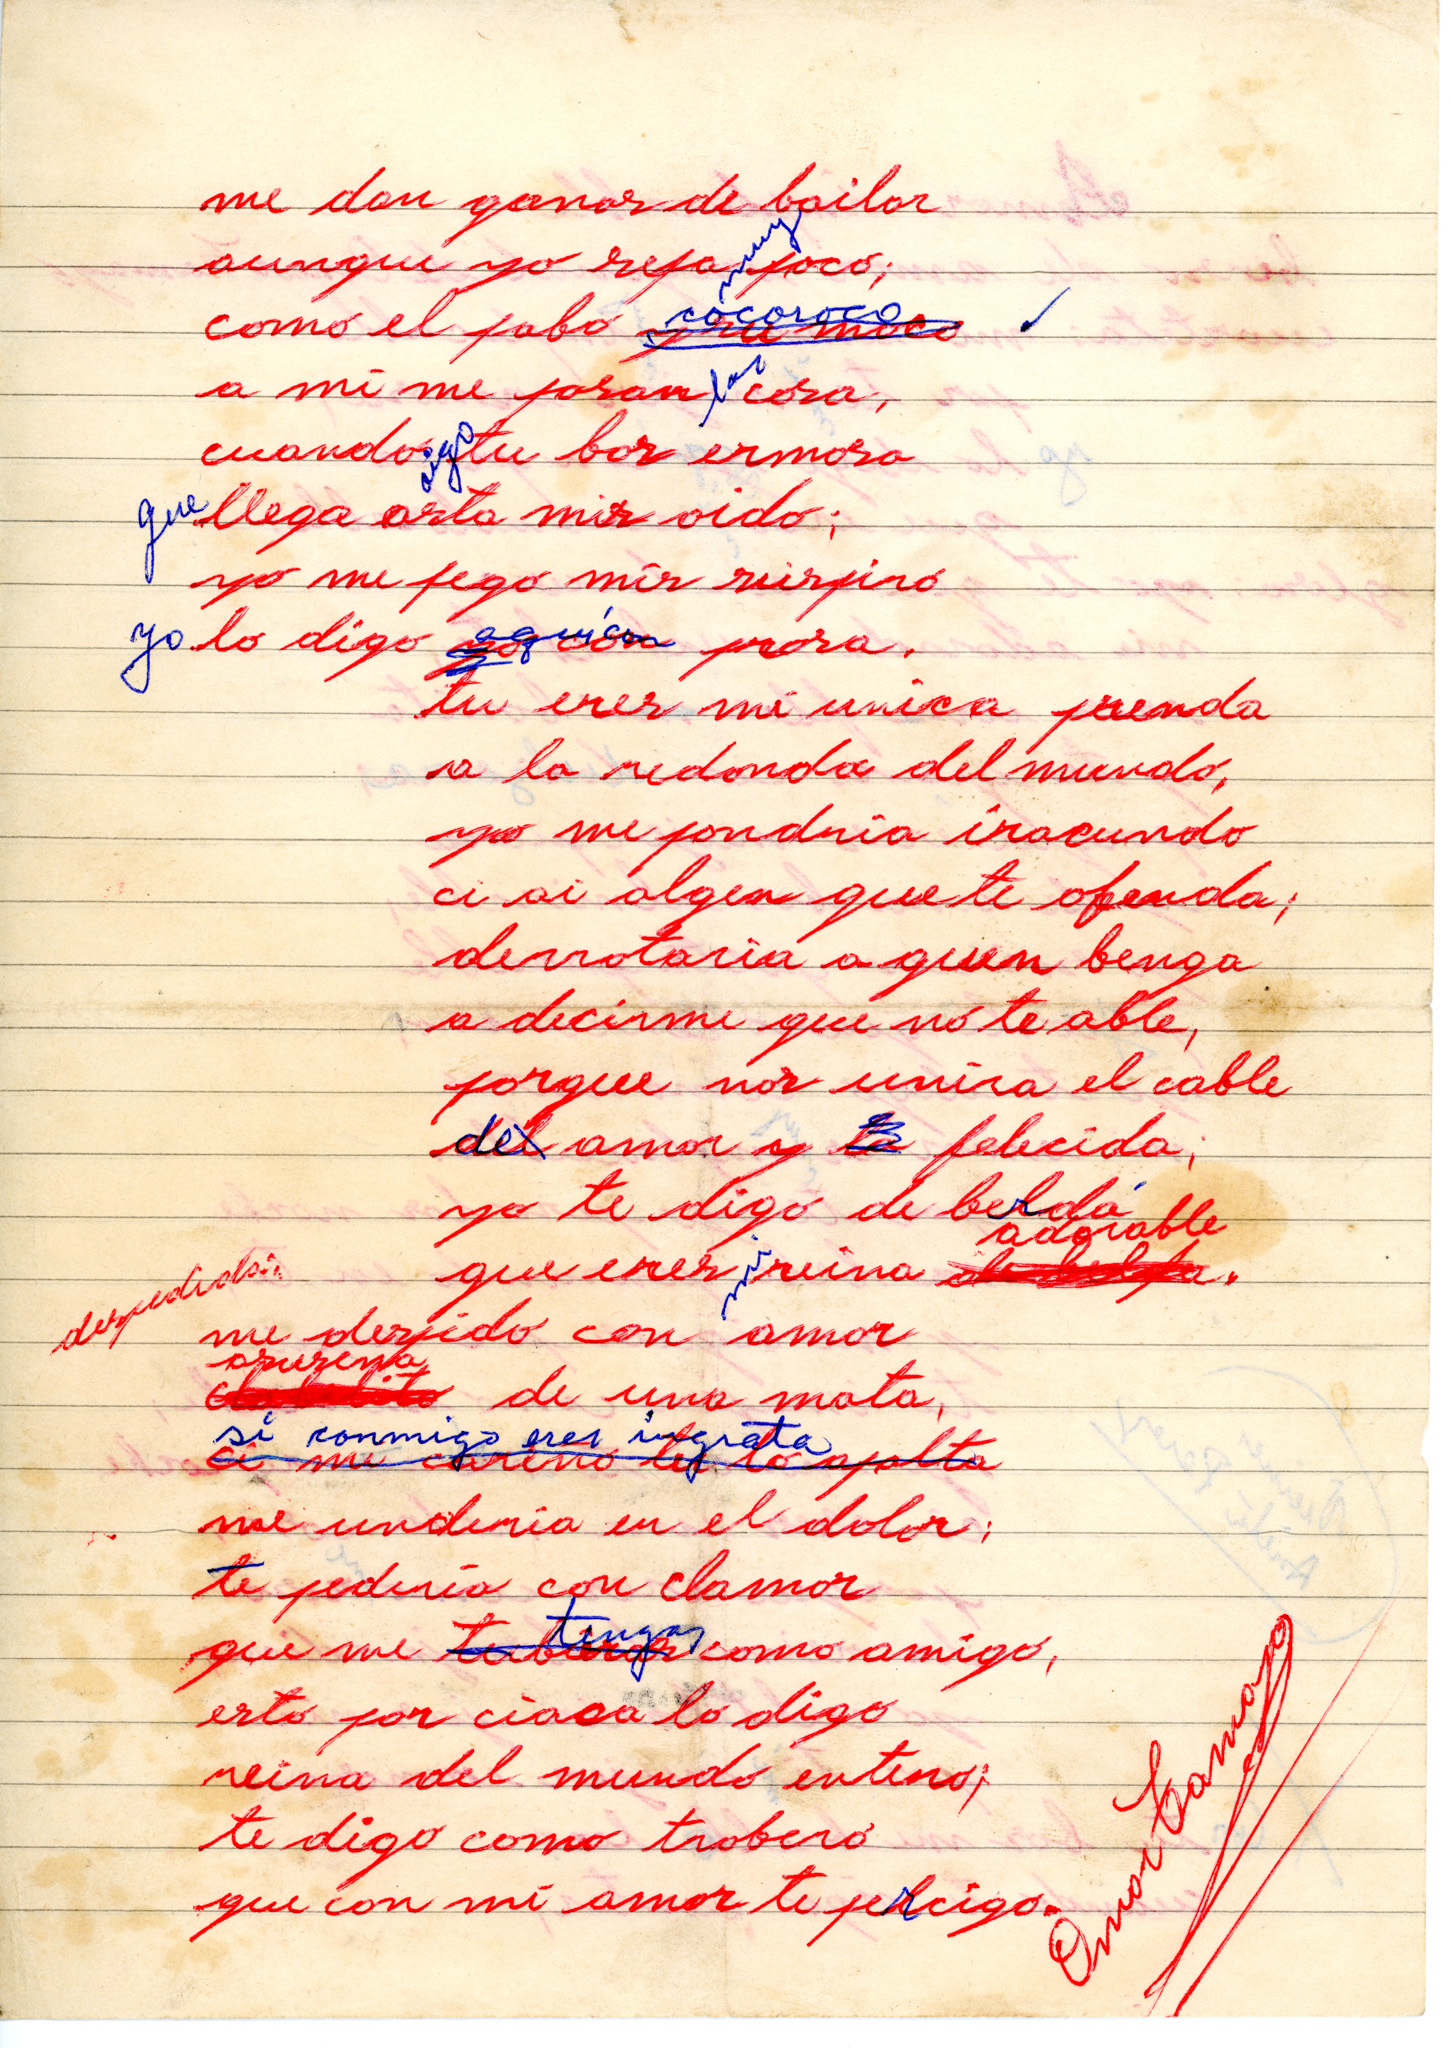 me dan ganas de bailar
aunque yo sepa muy poco;
como el pabo cocoroco
a mi me pasan las cosa,
cuando oigo tu bos ermosa
que llega asta mis oido;
yo me pego mis suspiro
yo lo digo aquí con prosa.
tu eres mi unica prenda
a la redonda del mundo,
yo me pondria iracundo
ci ai algen que te ofenda;
derrotaria a quen benga
a decirme que no te able,
porque nos unira el cable
de amor y felecida;
yo te digo de berdá
que eres mi reina adorable.
despedida:
me despido con amor
asusena de una mata,
si conmigo eres ingrata
ci mi cariño tu lo apalta
me underia en el dolor;
te pederia con clamor
que me tengas como amigo,
esto por ciaca lo digo
reina del mundo entero;
te digo como trobero
que con mi amor te percigo.
Omar Camayo